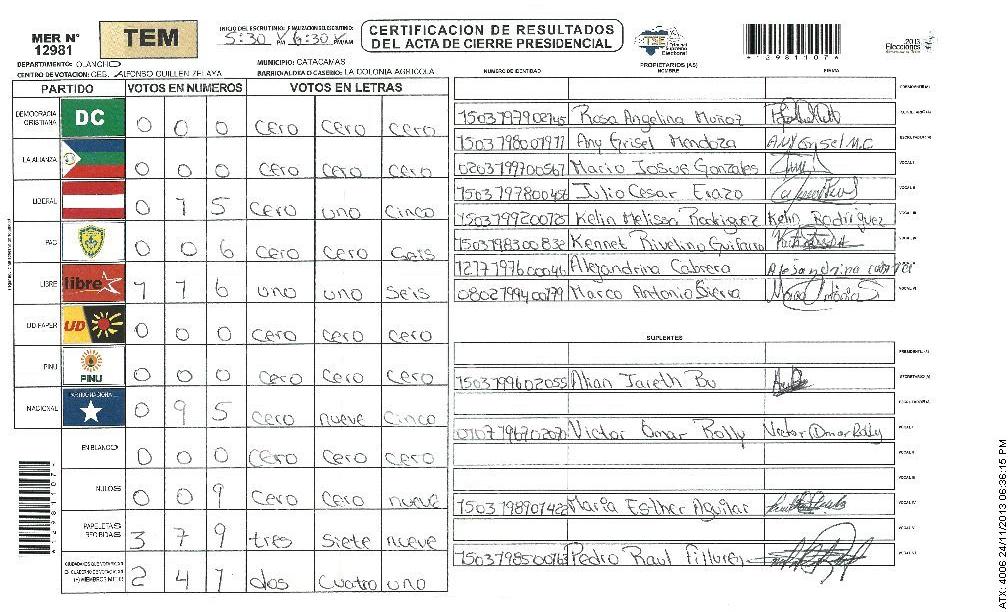 MER N° 12981
TEM
INICIO DEL ESCRUTINIO: FINALIZACION DEL ESCRUTINIO:
5:30 PM 6:30 PM/AM
CERTIFICACION DE RESULTADOS
DEL ACTA DE CIERRE PRESIDENCIAL
TSE Tribunal Supremo Electoral
*13981107*
2013 Elecciones
DEPARTAMENTO: OLANCHO
MUNICIPIO: CATACAMAS
CENTRO DE VOTACION: CEB. ALFONSO GUILLEN ZELAYA
BARRIO/ALDEA O CASERIO: LA COLONIA AGRICOLA
PARTIDO VOTOS EN NUMEROS VOTOS EN LETRAS
DEMOCRACIA CRISTIANA DC 0 0 0 cero cero cero
LA ALIANZA 0 0 0 cero cero cero
LIBERAL 0 1 5 cero uno cinco
PAC 0 0 6 cero cero seis
LIBRE libre 1 1 6 uno uno seis
UD-FAPER UD 0 0 0 cero cero cero
PINU PINU 0 0 0 cero cero cero
NACIONAL PARTIDO NACIONAL 0 9 5 cero nueve cinco
EN BLANCO 0 0 0 cero cero cero
NULOS 0 0 9 cero cero nueve
PAPELETAS RECIBIDAS 3 7 9 tres siete nueve
CIUDADANOS QUE VOTARON EN CUADERNO DE VOTACION (+) MIEMBROS MER 2 4 1 dos cuatro uno
NUMERO DE IDENTIDAD PROPIETARIOS (AS) NOMBRE FIRMA
PRESIDENTE(A)
Rosa Angelina Muñoz SECRETARIO(A)
1503198001971 Any Grisel Mendoza ANY Grisel M.C ESCRUTADOR(A)
0203199700567 Mario Josue Gonzales VOCAL I
1503197800456 Julio Cesar Erazo VOCAL II
1503199200725 Kelin Melissa Rodriguez Kelin Rodriguez VOCAL III
1503198300832 Kennet Rivelino Guifarro VOCAL IV
1217197600046 Alejandrina Cabrera Alejandrina cabrera VOCAL V
0802199400179 Marco Antonio Sierra VOCAL VI
SUPLENTES
PRESIDENTE (A)
1503199602055 Alan Jareth Bu SECRETARIO(A)
ESCRUTADOR(A)
Victor Omar Rolly Victor Omar Rolly VOCAL I
VOCAL II
VOCAL III
1503198901428 Maria Esther Aguilar VOCAL IV
VOCAL V
Pedro Raul VOCAL VI
*149811071*
ATX: 4006 24/11/2013 06:36:15 PM